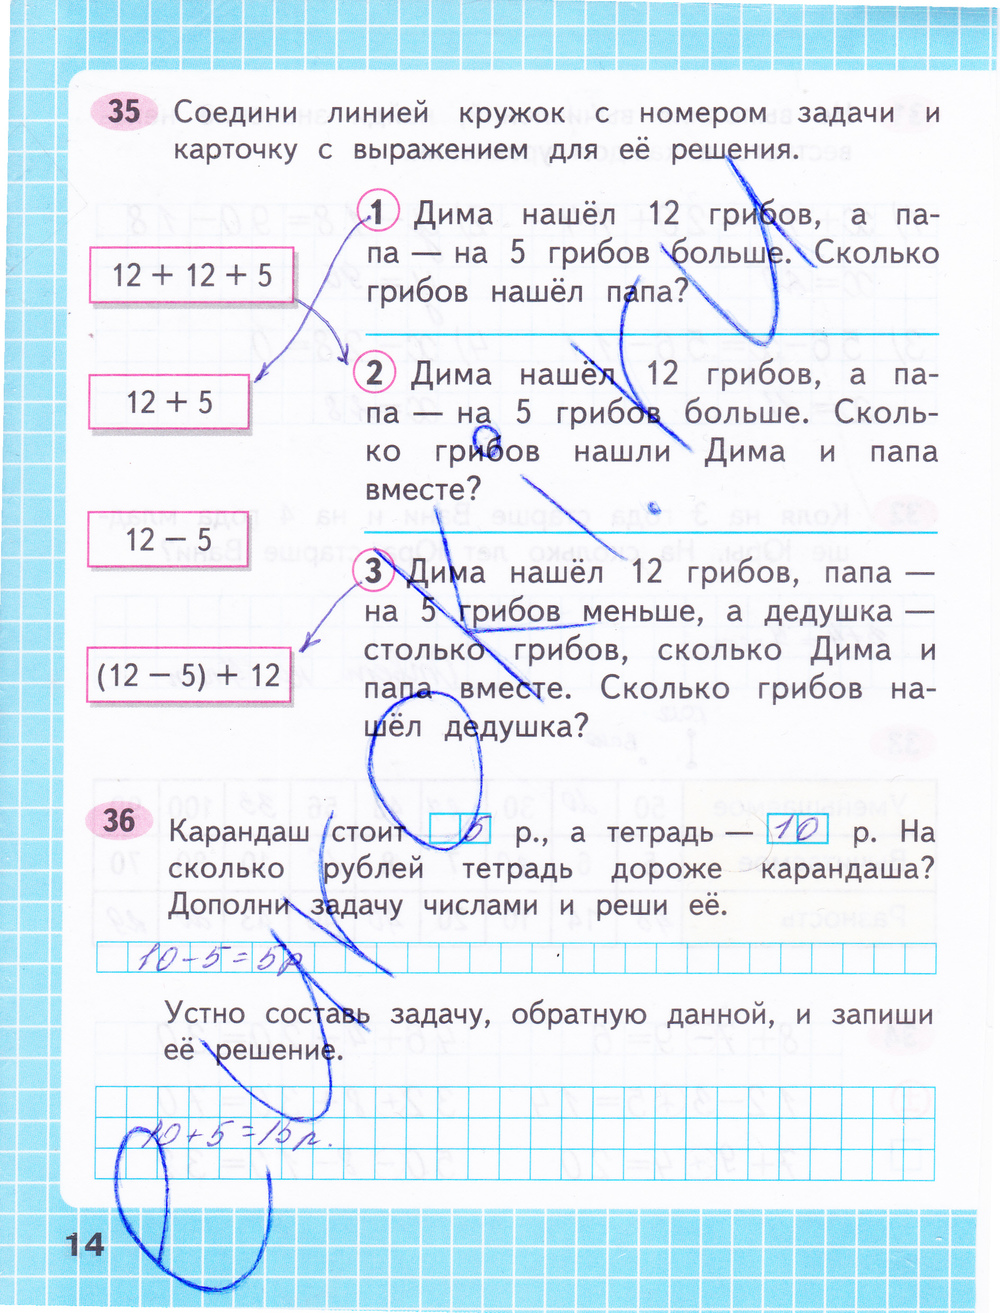 35 Соедини линией кружок с номером задачи и
карточку с выражением для её решения.
1 Дима нашёл 12 грибов, а па-
па — на 5 грибов больше. Сколько
грибов нашёл папа?
12 + 12 + 5
2 Дима нашёл 12 грибов, а па-
па — на 5 грибов больше. Сколь-
ко грибов нашли Дима и папа
вместе?
12 + 5
12 − 5
3 Дима нашёл 12 грибов, папа —
на 5 грибов меньше, а дедушка —
столько грибов, сколько Дима и
папа вместе. Сколько грибов на-
шёл дедушка?
(12 − 5) + 12
36 Карандаш стоит 5 р., а тетрадь — 10 р. На
сколько рублей тетрадь дороже карандаша?
Дополни задачу числами и реши её.
10-5=5р
Устно составь задачу, обратную данной, и запиши
её решение.
10+5=15р.
14